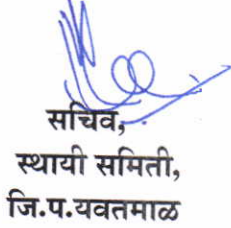 सचिव,
स्थायी समिती,
जि.प.यवतमाळ